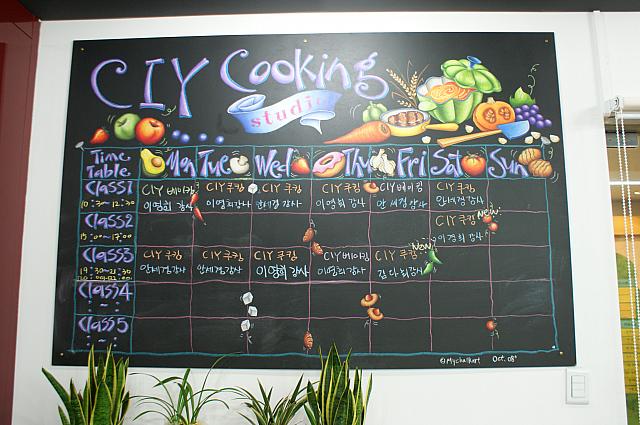 CIY Cooking
studio
Time Table Mon Tue Wed Thu Fri Sat Sun
Class1 CIY 베이킹 CIY 쿠킹 CIY 쿠킹 CIY 쿠킹 CIY 베이킹 CIY 쿠킹
10:30~12:30 이영희 강사 이영희 강사 안세경 강사 이영희 강사 안세경 강사 안세경 강사
Class2 CIY 쿠킹 New
15:00~17:00 이영희 강사
Class3 CIY 쿠킹 CIY 쿠킹 CIY 쿠킹 CIY 베이킹 CIY 쿠킹 New
19:30~21:30 안세경 강사 안세경 강사 이영희 강사 이영희 강사 강사
Class4
~
~
Class5
~
~
©Mychalkart Oct. 08'